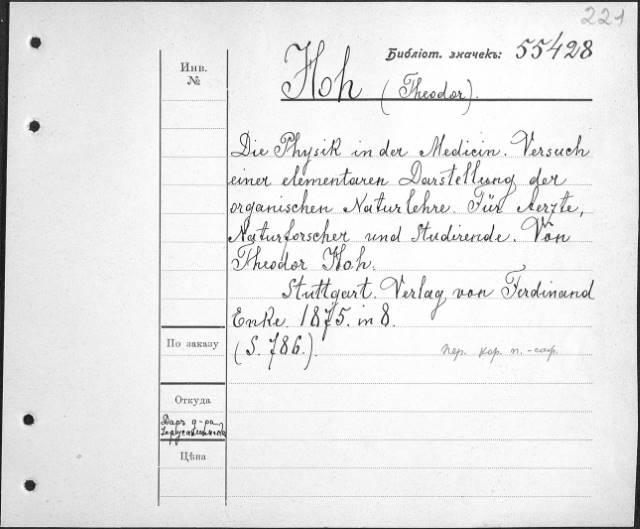 221
Библіот. значекъ: 55428
Инв.
№
Hoh
(Theodor).
Die Physik in der Medicin. Versuch
einer elementaren Darstellung der
organischen Naturlehre. Für Aerzte,
Naturforscher und Studirende. Von
Theodor Hoh.
Stuttgart. Verlag von Ferdinand
Enke. 1875. in 8.
По заказу
(S. 786.).
пер. кор. п.-саф.
Откуда
Даръ д-ра
Цѣна